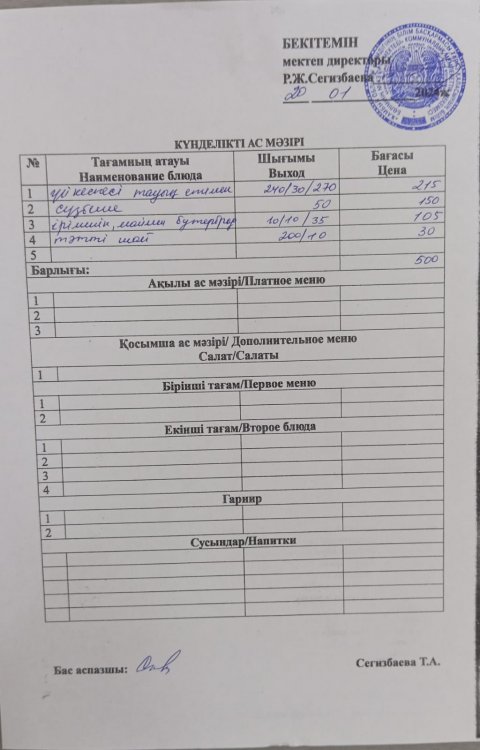 БЕКІТЕМІН
мектеп директоры
Р.Ж.Сегизбаева
20 01 2024ж
КҮНДЕЛІКТІ АС МӘЗІРІ
№ Тағамның атауы Наименование блюда Шығымы Выход Бағасы Цена
1 үй кеспесі тауық етімен 240/30/270 215
2 сүзбеше 50 150
3 ірімшік, маймен бутерброд 10/10/35 105
4 тәтті шай 200/10 30
5
Барлығы: 500
Ақылы ас мәзірі/Платное меню
1
2
3
Қосымша ас мәзірі/ Дополнительное меню
Салат/Салаты
1
Бірінші тағам/Первое меню
1
2
Екінші тағам/Второе блюда
1
2
3
4
Гарнир
1
2
Сусындар/Напитки
Бас аспазшы: Сегизбаева Т.А.